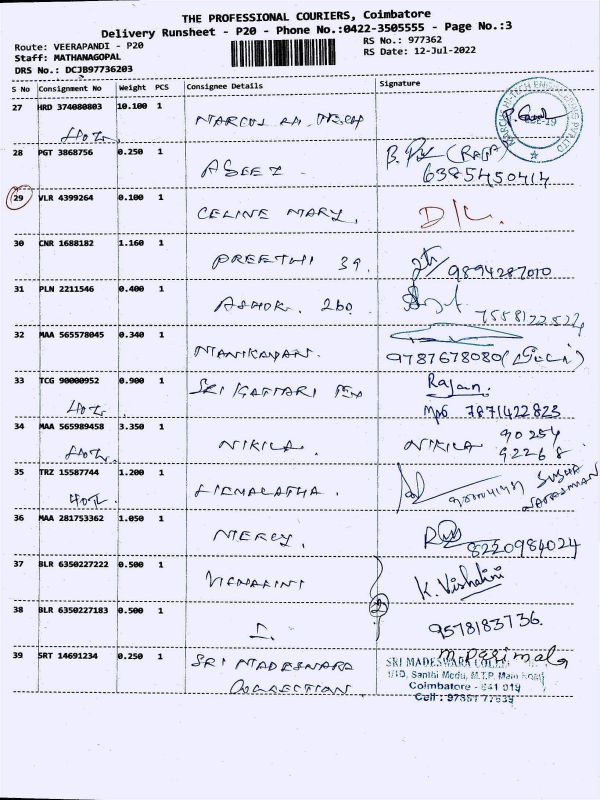 THE PROFESSIONAL COURIERS, Coimbatore
Delivery Runsheet - P20 - Phone No.:0422-3505555 - Page No.:3
Route: VEERAPANDI - P20
RS No.: 977362
Staff: MATHANAGOPAL
RS Date: 12-Jul-2022
DRS No.: DCJB97736203
S No Consignment No Weight PCS Consignee Details Signature
27 HRD 374080803 10.100 1 MARCUS
28 PGT 3868756 0.250 1 ASEEZ B. (RAJA)
6385450414
29 VLR 4399264 0.100 1 CELINE MARY. D/L.
30 CNR 1688182 1.160 1 PREETHI 39. 9894287010
31 PLN 2211546 0.400 1 ASHOK. 260.
32 MAA 565578045 0.340 1 MANIKANDAN.
9787678080
33 TCG 90000952 0.900 1 SRI Rajan.
7871422823
34 MAA 565989458 3.350 1 NIKILA. NIKILA 90254
92268
35 TRZ 15587744 1.200 1 HEMALATHA.
36 MAA 281753362 1.050 1 MERCY.
8220984024
37 BLR 6350227222 0.500 1 K. Vishalini
38 BLR 6350227183 0.500 1 9578183736.
39 SRT 14691234 0.250 1 SRI MADESWARA M. Parimala
SRI MADESWARA
Santhi Medu, M.T.P. Main Road
Coimbatore - 641 019